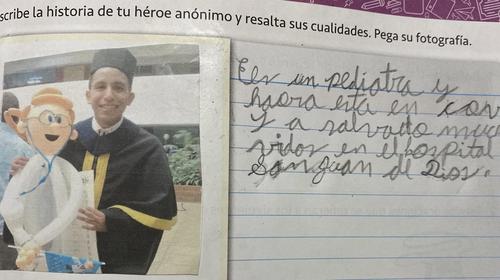 scribe la historia de tu héroe anónimo y resalta sus cualidades. Pega su fotografía.
Es un pediatra y
haora esta en con
y a salvado muc
vidas en el hospital
San guan de Dios.